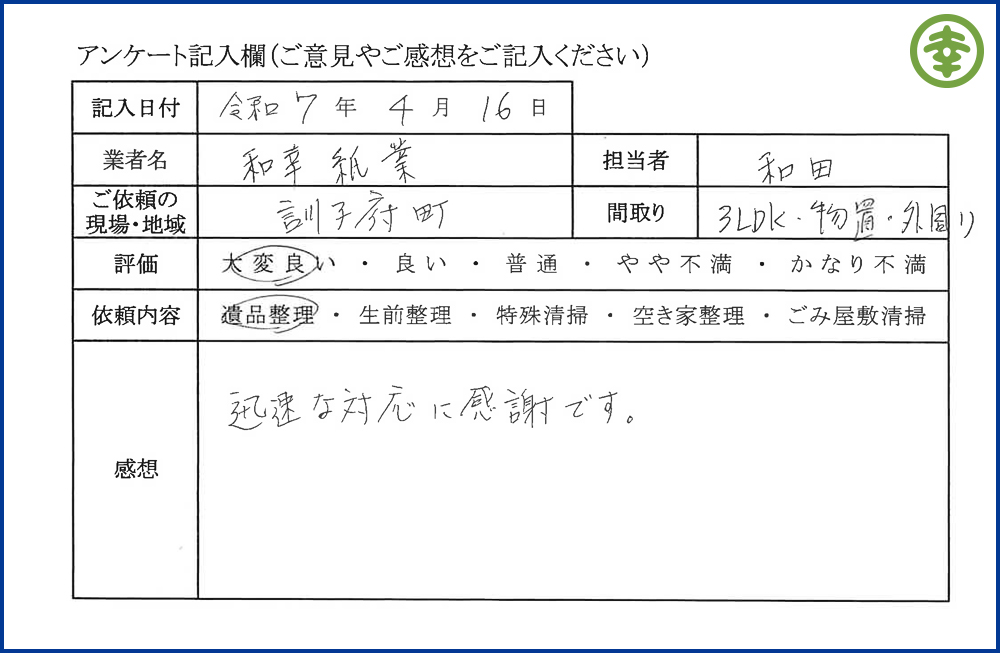 幸
アンケート記入欄(ご意見やご感想をご記入ください)
記入日付 令和 7 年 4 月 16 日
業者名 和幸紙業 担当者 和田
ご依頼の現場・地域 訓子府町 間取り 3LDK・物置・外回り
評価 大変良い ・ 良い ・ 普通 ・ やや不満 ・ かなり不満
依頼内容 遺品整理 ・ 生前整理 ・ 特殊清掃 ・ 空き家整理 ・ ごみ屋敷清掃
感想 迅速な対応に感謝です。